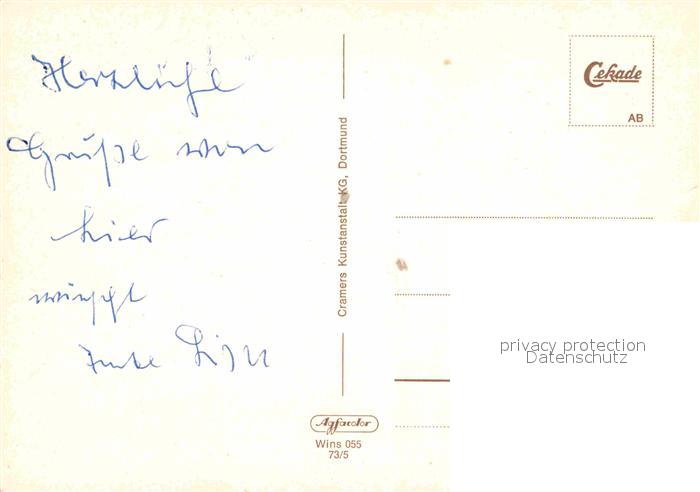 Herzliche
Grüße von
hier
wünscht
Cramers Kunstanstalt KG, Dortmund
Agfacolor
Wins 055
73/5
Cekade
AB
privacy protection
Datenschutz